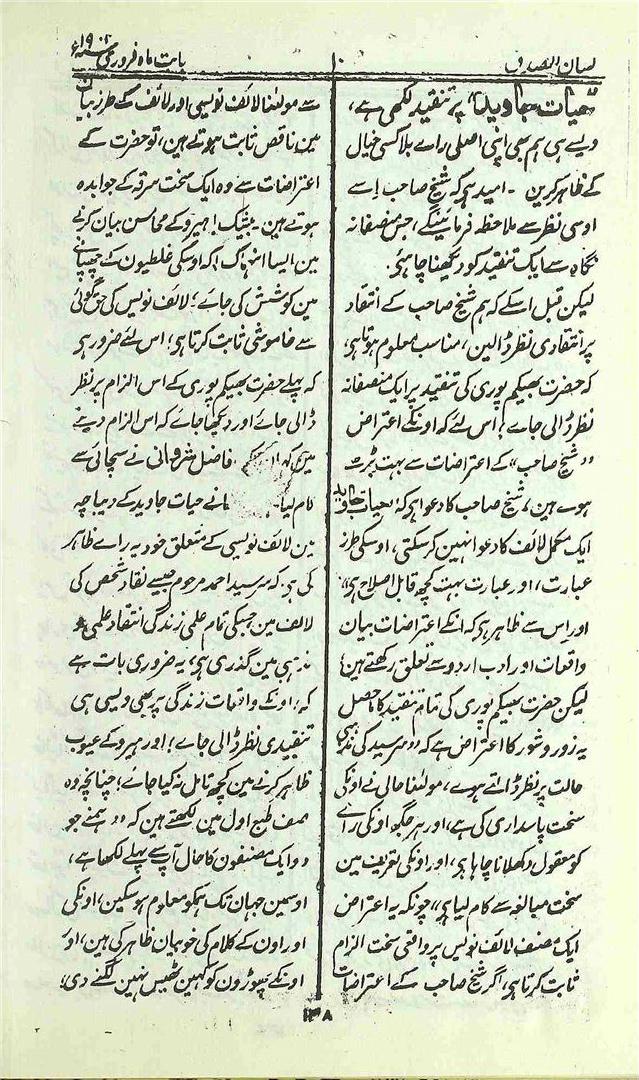 لسان الصدق
۱۰
بابت ماہ فروری سنہ ۱۹۰۴ء
"حیات جاوید" پر تنقید لکھی ہے،
ویسے ہی ہم بھی اپنی اصلی راے بلا کسی خیال
کے ظاہر کرین ۔ امید ہی کہ شیخ صاحب اِسے
اوسی نظر سے ملاحظہ فرمائینگے، جس منصفانہ
نگاہ سے ایک تنقید کو دیکھنا چاہیٔ.
لیکن قبل اسکے کہ ہم شیخ صاحب کے انتقاد
پر انتقادی نظر ڈالین، مناسب معلوم ہوتا ہی،
کہ حضرت بھیکم پوری کی تنقید پر ایک منصفانہ
نظر ڈالی جاے! اس لئے کہ اونکے اعتراض
"شیخ صاحب" کے اعتراضات سے بہت بڑے
ہوے ہین، شیخ صاحب کا دعوا ہی کہ "حیات جاوید
ایک مکمل لائف کا دعوا نہین کر سکتی، اوسکی طرز
عبارت، اور عبارت بہت کچھ قابل اصلاح ہی"
اور اس سے ظاہر ہی کہ انکے اعتراضات بیان
واقعات اور ادب اردو سے تعلق رکھتے ہین؛
لیکن حضرت بھیکم پوری کی تمام تنقید کا ماحصل
یہ زور و شور کا اعتراض ہے کہ "سر سید کی مذہبی
حالت پر نظر ڈالتے ہوے، مولٰنا حالی نے اونکی
سخت پاسداری کی ہے، اور ہر جگہ اونکی راے
کو معقول دکھلانا چاہا ہی، اور اونکی تعریف مین
سخت مبالغہ سے کام لیا ہی" چونکہ یہ اعتراض
ایک مصنف لائف نویس پر واقعی سخت الزام
ثابت کرتا ہی، اگر شیخ صاحب کے اعتراضات
سے مولٰنا لائف نویسی اور لائف کے طرز بیان
مین ناقص ثابت ہوتے ہین، تو حضرت کے
اعتراضات سے وہ ایک سخت سرقہ کے جوابدہ
ہوتے ہین ۔ بیشک! ہیرو کے محاسن بیان کرنے
مین ایسا انہماک! کہ اوسکی غلطیون کے چھپانے
مین کوشش کی جاے؛ لائف نویس کی حق گوئی
سے خاموشی ثابت کرتا ہی؛ اس لئے ضرور ہی
کہ پہلے حضرت بھیکم پوری کے اس الزام پر نظر
ڈالی جاے اور دیکھا جاے کہ اس الزام دینے
مین فاضل شروانی نے سچائی سے
کام لیا نے حیات جاوید کے دیباچہ
مین لائف نویسی کے متعلق خود یہ راے ظاہر
کی ہی کہ سر سید احمد مرحوم جیسے نقاد شخص کی
لائف مین جسکی تمام علمی زندگی انتقاد علمی و
مذہبی مین گذری ہی، یہ ضروری بات ہے
کہ؛ اونکے واقعات زندگی پر بھی ویسی ہی
تنقیدی نظر ڈالی جاے؛ اور ہیرو کے عیوب
ظاہر کرنے مین کچھ تامل نہ کیا جاے؛ چنانچہ وہ
صفہ طبع اول مین لکھتے ہین کہ "ہمنے جو
دو ایک مصنفون کا حال آپسے پہلے لکھا ہے،
اوسمین جہان تک ہمکو معلوم ہو سکین، اونکی
اور اون کے کلام کی خوبیان ظاہر کی ہین، اور
اونکے پھوڑون کو کہین ٹھیس نہین لگنے دی؛
۱۳۸